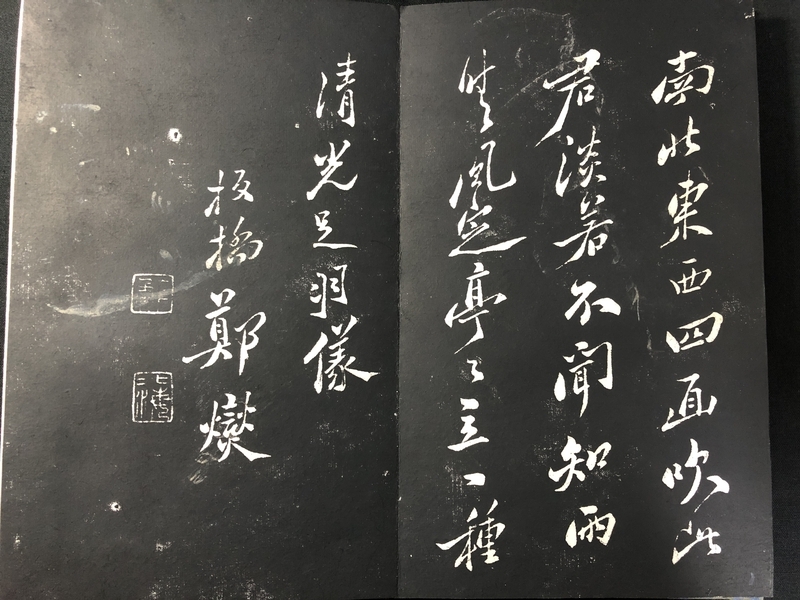 南北東西四面吹此
君淡若不聞知雨
晴風定亭々立一種
清光足羽儀
板橋鄭燮